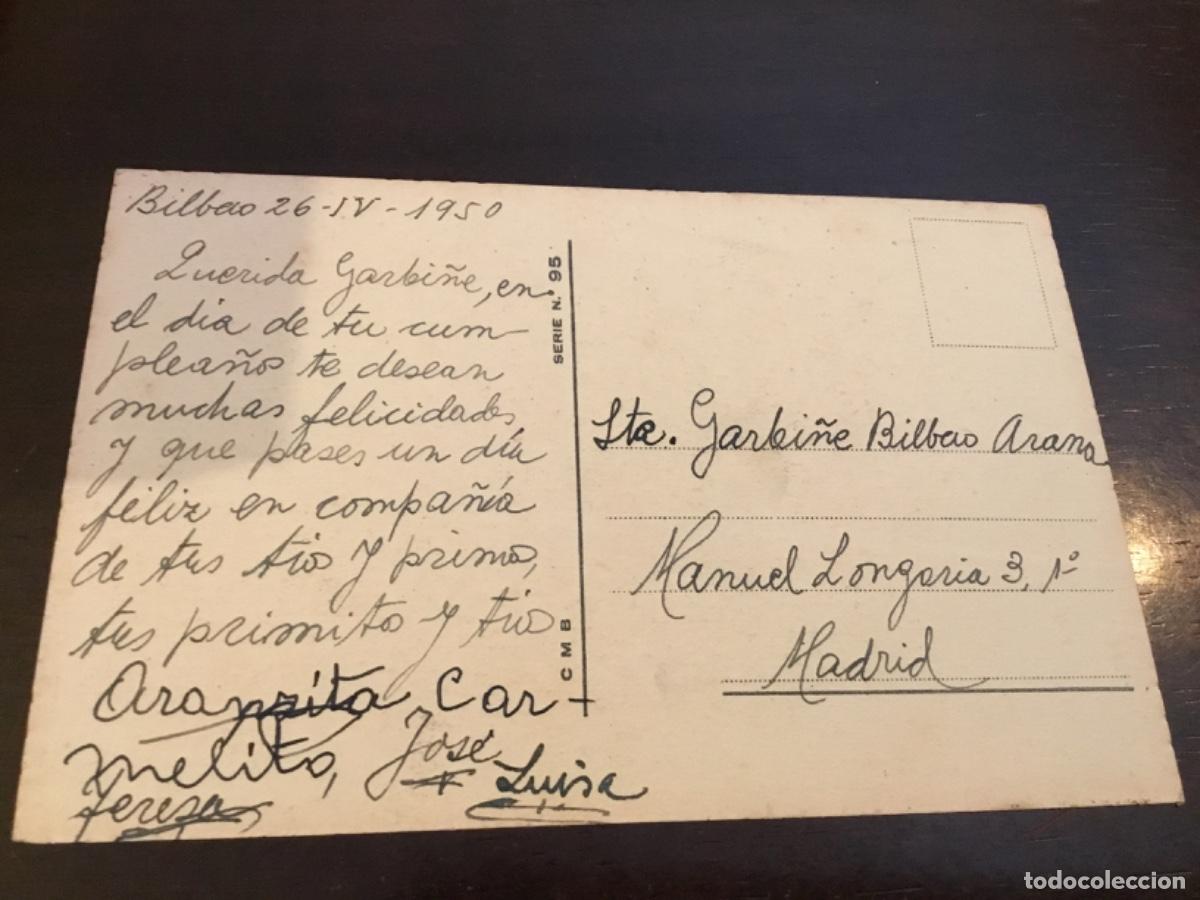 Bilbao 26-IV-1950
Querida Garbiñe, en
el dia de tu cum-
pleaños te desean
muchas felicidades
y que pases un día
feliz en compañía
de tus tíos y primo,
tus primitos y tíos
Aranzita Car-
melito, José
Luisa
Teresa
SERIE N. 95
C M B
Sta. Garbiñe Bilbao Arana
Manuel Longoria 3, 1º
Madrid
todocoleccion